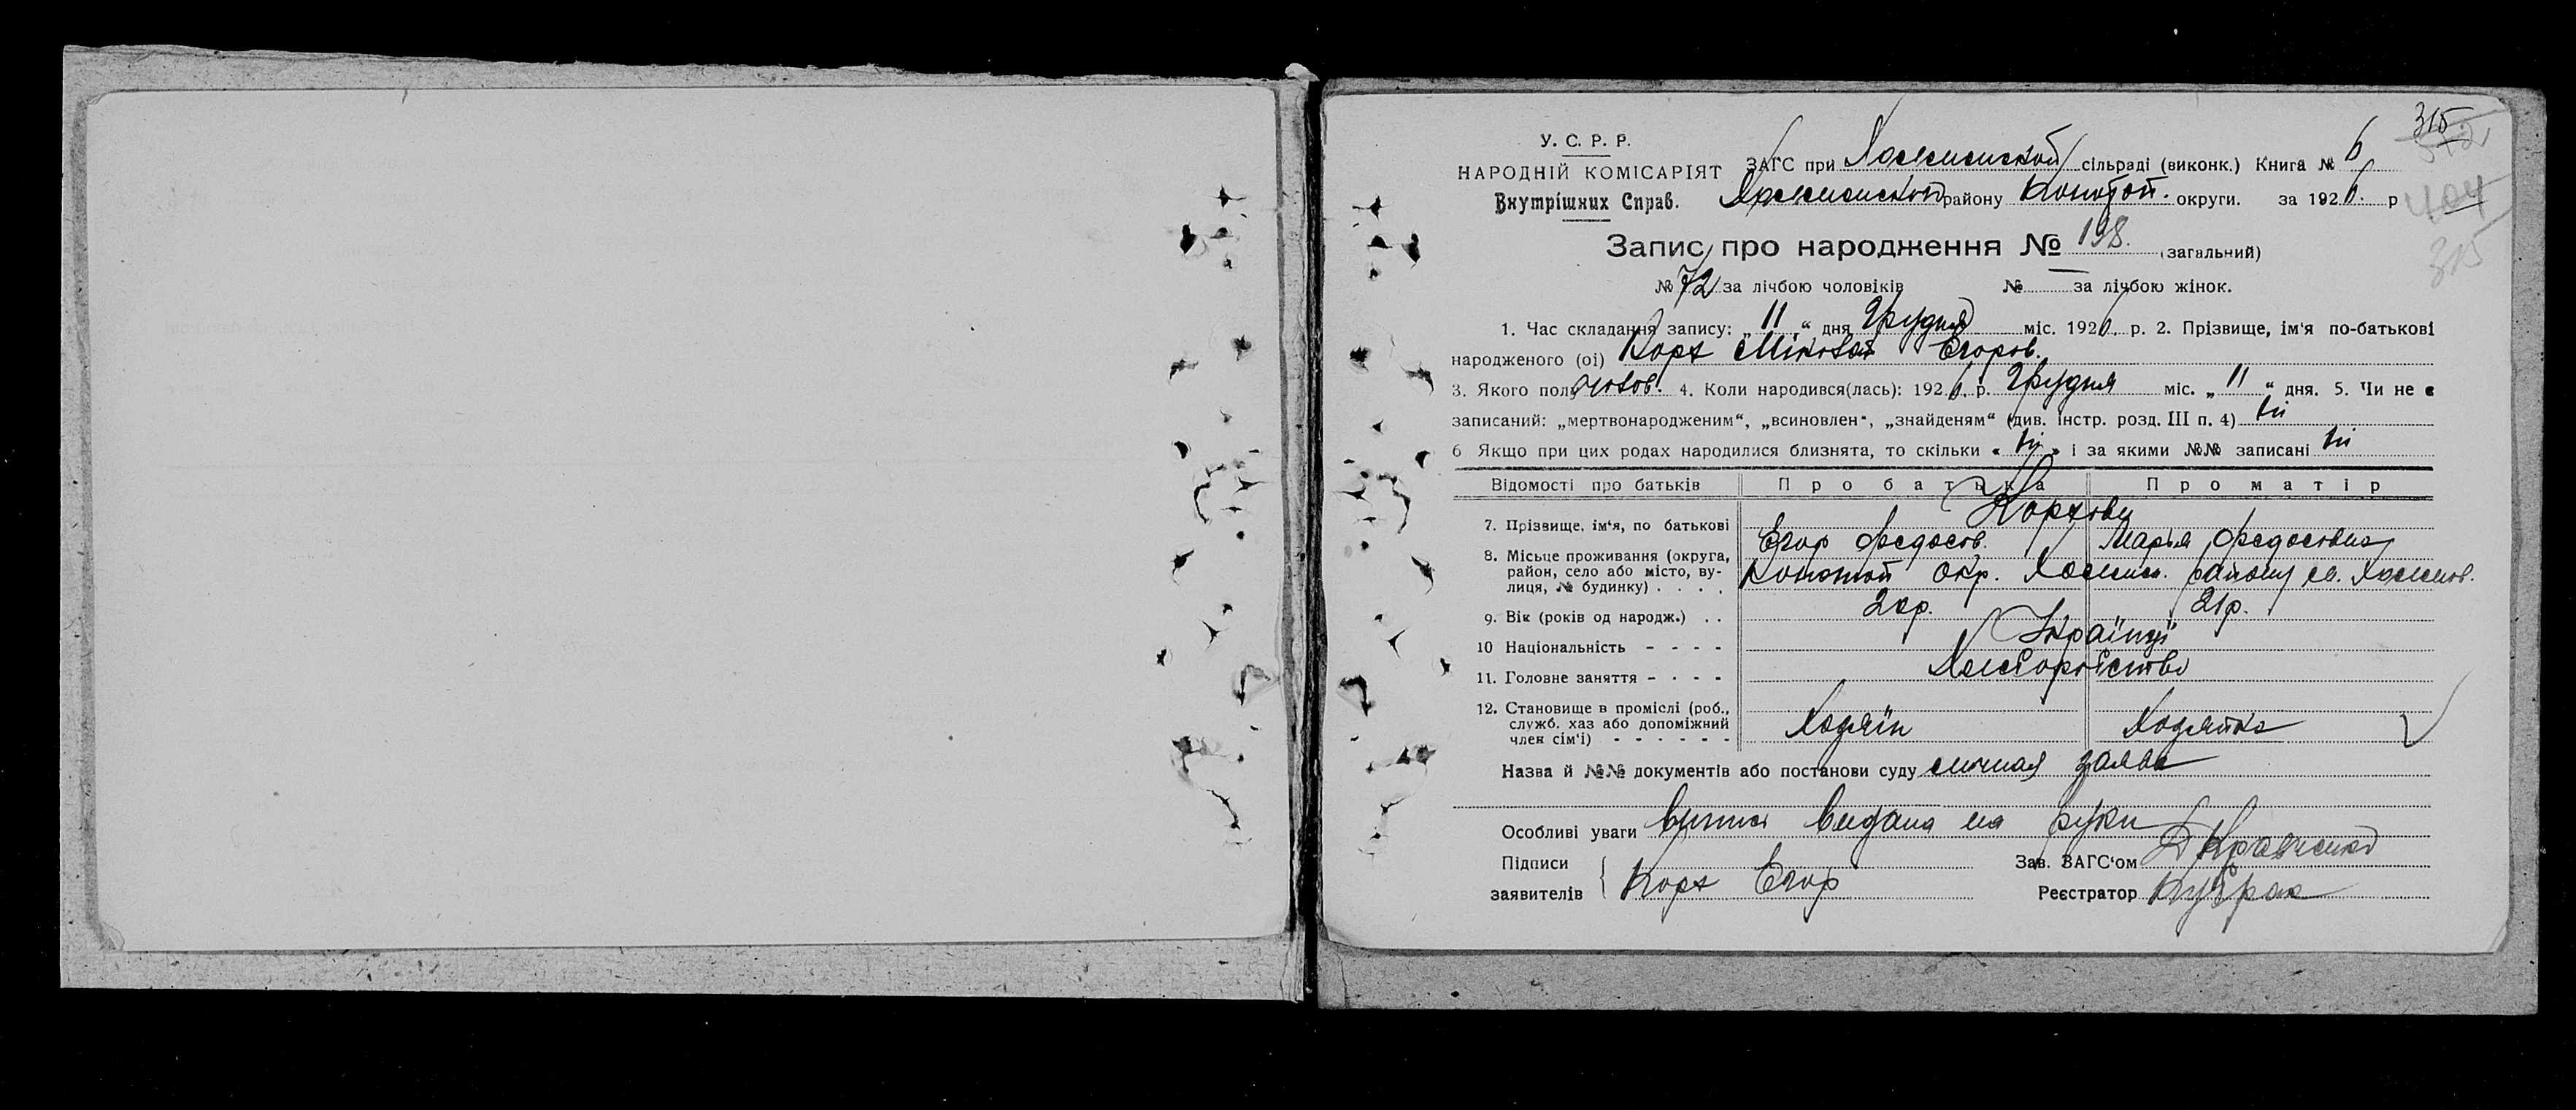 315
У. С. Р. Р.
НАРОДНІЙ КОМІСАРІЯТ
Внутрішних Справ.
ЗАГС при сільраді (виконк.) Книга № 6
404
району Конотоп. округи. за 1926. р
315
Запис про народження № 198. (загальний)
№ 72 за лічбою чоловіків № — за лічбою жінок.
1. Час складання запису: „ 11 “ дня Грудня міс. 1926. р. 2. Прізвище, ім'я по-батькові
народженого (ої) Корж Міколай Егоров.
3. Якого полу чолов. 4. Коли народився(лась): 1926. р. Грудня міс. „ 11 “ дня. 5. Чи не є
записаний: „мертвонародженим“, „всиновлен“, „знайденям“ (див. інстр. розд. III п. 4) ні
6 Якщо при цих родах народилися близнята, то скільки « ні » і за якими №№ записані ні
Відомості про батьків Про батька Про матір
7. Прізвище, ім'я, по батькові Коржови
Егор Федосов. Марья Федосовна
8. Місьце проживання (округа, район, село або місто, вулиця, № будинку) . . . . Конотоп окр. району
9. Вік (років од народж.) . . 20р. 21р.
10 Національність - - - - Українці
11. Головне заняття - - - - Хліборобство
12. Становище в проміслі (роб., служб. хаз або допоміжний член сім'ї) - - - - - - Хазяїн Хазяйка
Назва й №№ документів або постанови суду заява
Особливі уваги выпис видана на руки
Підписи
заявителів Корж Егор
Зав. ЗАГС'ом Кравченко
Реєстратор